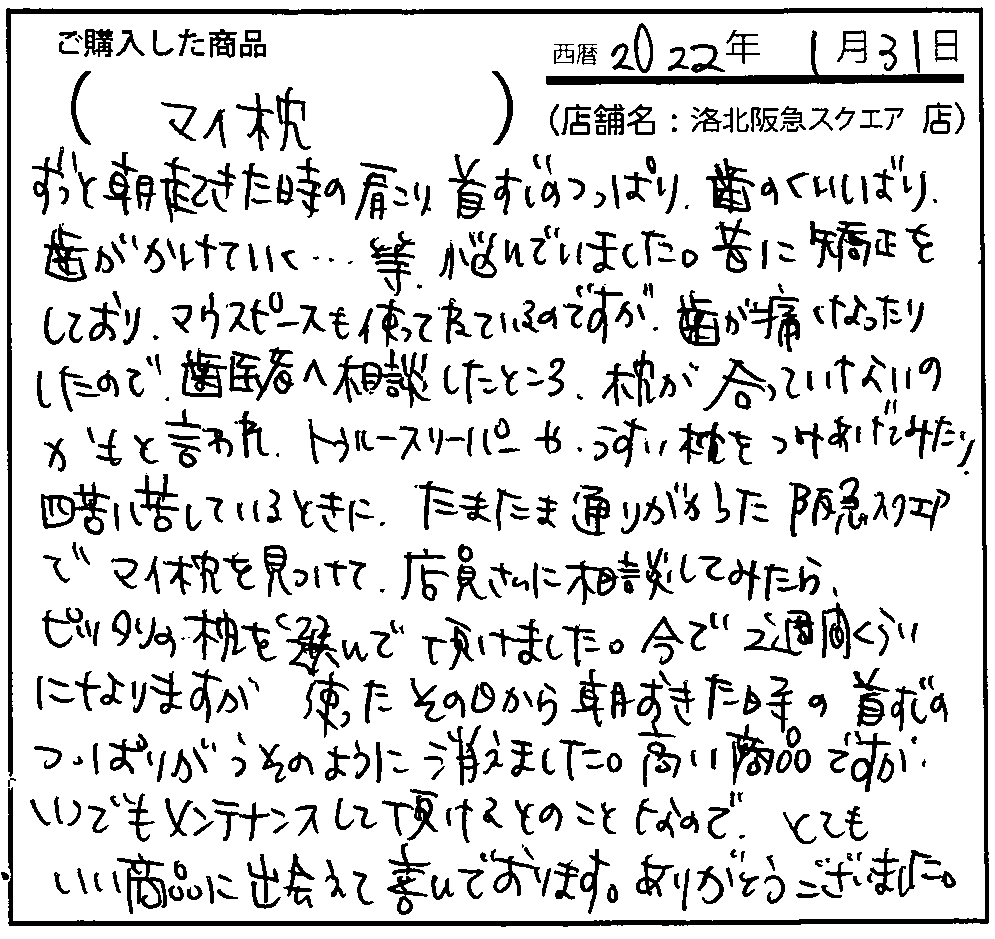 ご購入した商品
西暦 2022年 1月31日
(マイ枕)
(店舗名：洛北阪急スクエア 店)
ずっと朝起てきた時の肩こり、首すじのつっぱり、歯のくいしばり、
歯がかけていく…等、悩んでいました。昔に矯正を
しており、マウスピースも使ってねているのですが、歯が痛くなったり
したので、歯医者へ相談したところ、枕が合っていないの
かもと言われ、トゥルースリーパーや、うすい枕をつみあげてみたり、
四苦八苦しているときに、たまたま通りがかった阪急スクエア
でマイ枕を見つけて、店員さんに相談してみたら、
ピッタリの枕を選んで頂けました。今で2週間くらい
になりますが 使ったその日から朝おきた時の首すじの
つっぱりがうそのように消えました。高い商品ですが、
いつでもメンテナンスして頂けるとのことなので、とても
いい商品に出会えて喜んでおります。ありがとうございました。